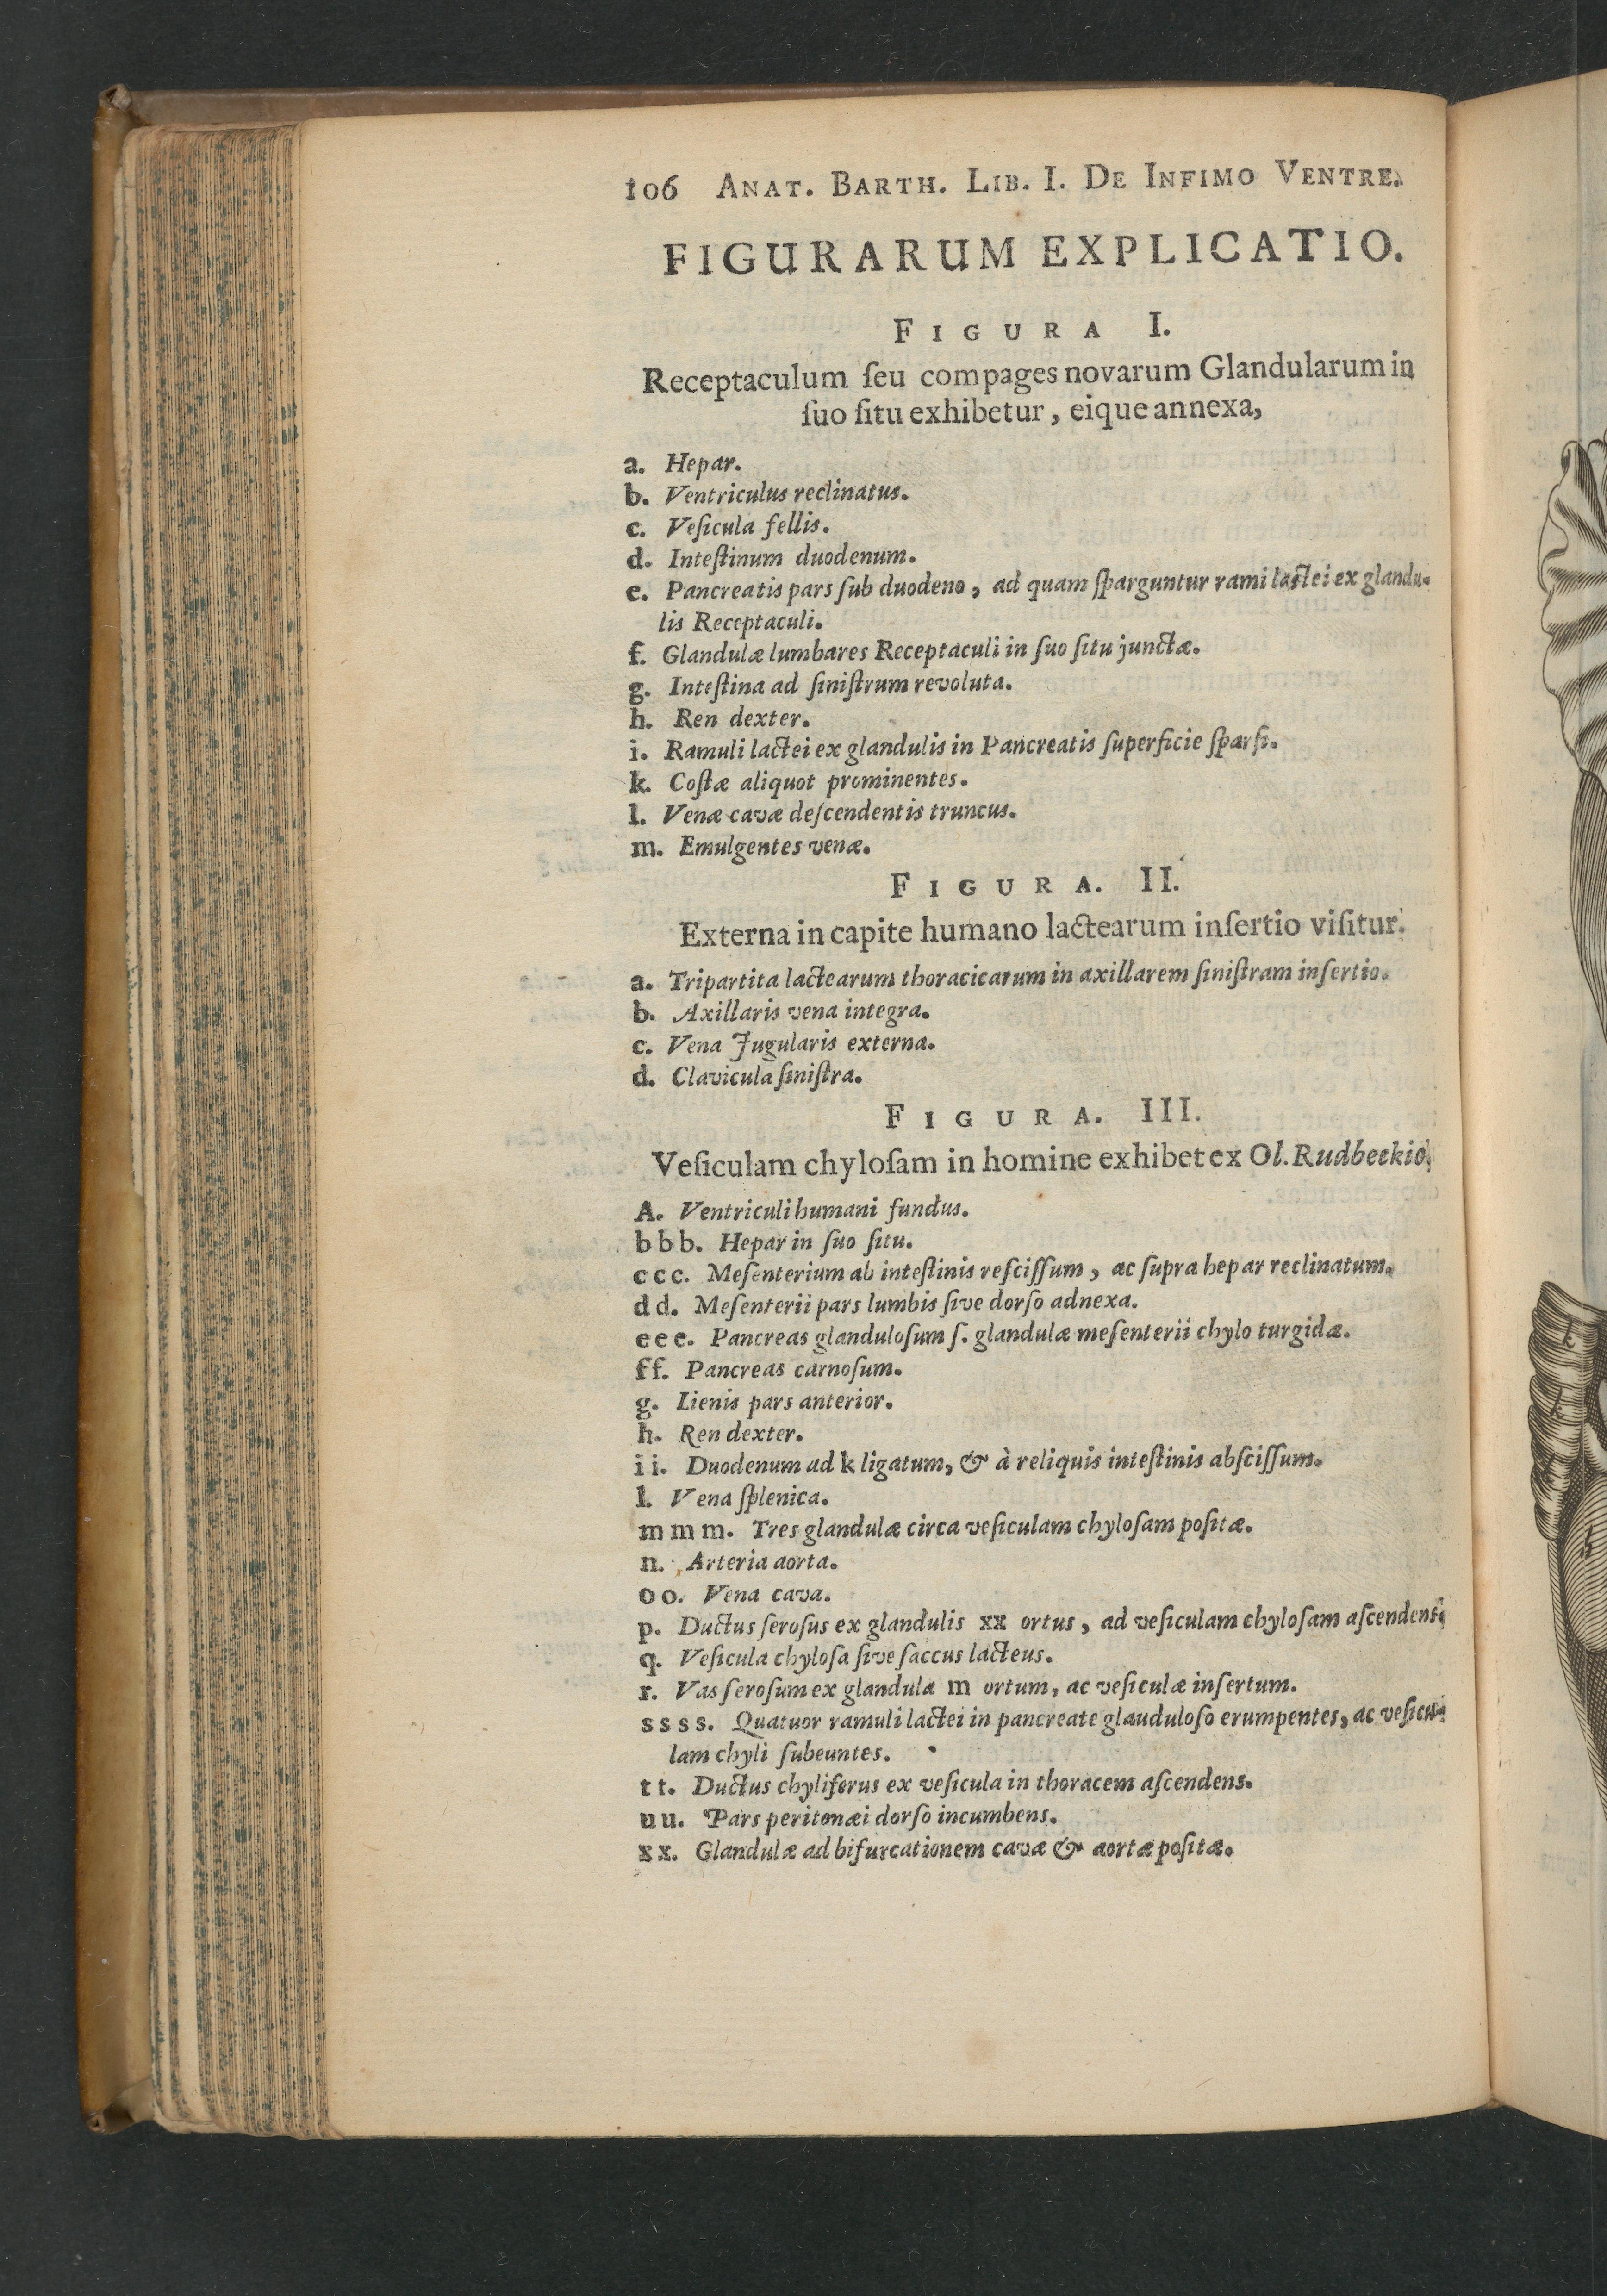 106 ANAT. BARTH. LIB. I. DE INFIMO VENTRE.
FIGURARUM EXPLICATIO.
FIGURA I.
Receptaculum ſeu compages novarum Glandularum in
ſuo ſitu exhibetur, eique annexa,
a. Hepar.
b. Ventriculus reclinatus.
c. Veſicula fellis.
d. Inteſtinum duodenum.
e. Pancreatis pars ſub duodeno, ad quam ſparguntur rami lactei ex glandu-
lis Receptaculi.
f. Glandulæ lumbares Receptaculi in ſuo ſitu junctæ.
g. Inteſtina ad ſiniſtrum revoluta.
h. Ren dexter.
i. Ramuli lactei ex glandulis in Pancreatis ſuperficie ſparſi.
k. Coſtæ aliquot prominentes.
l. Venæ cavæ deſcendentis truncus.
m. Emulgentes venæ.
FIGURA. II.
Externa in capite humano lactearum inſertio viſitur.
a. Tripartita lactearum thoracicarum in axillarem ſiniſtram inſertio.
b. Axillaris vena integra.
c. Vena Jugularis externa.
d. Clavicula ſiniſtra.
FIGURA. III.
Veſiculam chyloſam in homine exhibet ex Ol. Rudbeckio.
A. Ventriculi humani fundus.
b b b. Hepar in ſuo ſitu.
c c c. Meſenterium ab inteſtinis reſciſſum, ac ſupra hepar reclinatum.
d d. Meſenterii pars lumbis ſive dorſo adnexa.
e e e. Pancreas glanduloſum ſ. glandulæ meſenterii chylo turgidæ.
f f. Pancreas carnoſum.
g. Lienis pars anterior.
h. Ren dexter.
i i. Duodenum ad k ligatum, & à reliquis inteſtinis abſciſſum.
l. Vena ſplenica.
m m m. Tres glandulæ circa veſiculam chyloſam poſitæ.
n. Arteria aorta.
o o. Vena cava.
p. Ductus ſeroſus ex glandulis xx ortus, ad veſiculam chyloſam aſcendens.
q. Veſicula chyloſa ſive ſaccus lacteus.
r. Vas ſeroſum ex glandula m ortum, ac veſiculæ inſertum.
s s s s. Quatuor ramuli lactei in pancreate glauduloſo erumpentes, ac veſicu-
lam chyli ſubeuntes.
t t. Ductus chyliferus ex veſicula in thoracem aſcendens.
u u. Pars peritonæi dorſo incumbens.
x x. Glandulæ ad bifurcationem cavæ & aortæ poſitæ.
k
k
h